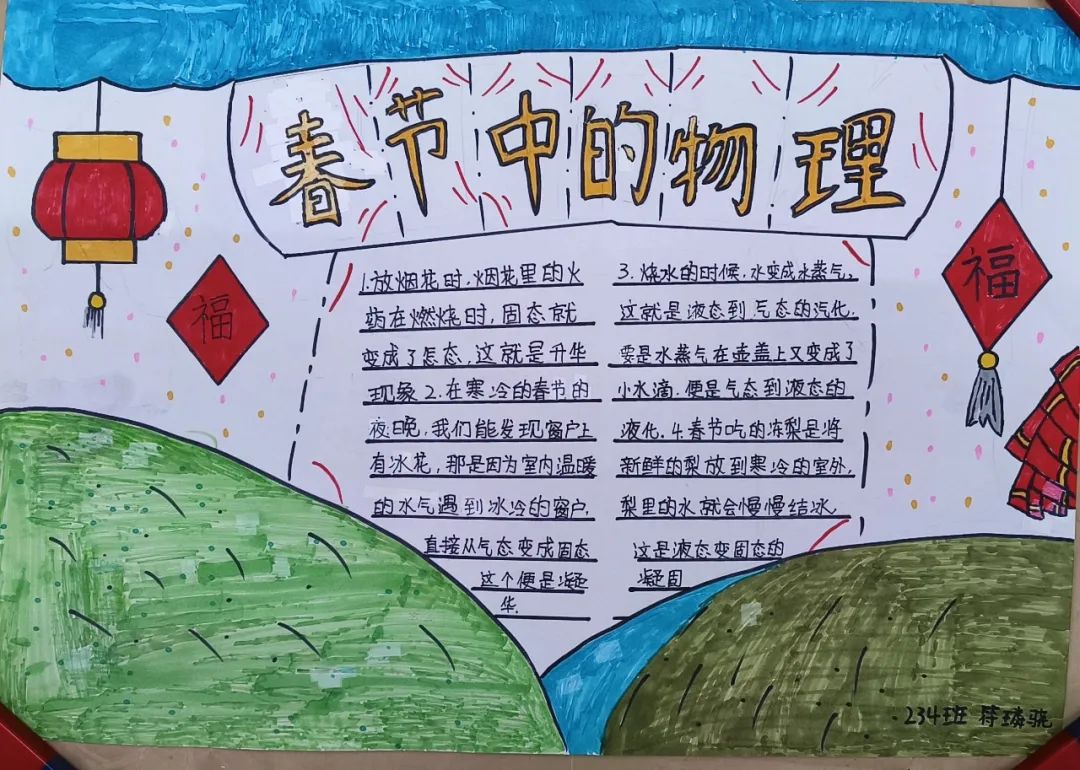 春节中的物理
福
福
1.放烟花时,烟花里的火
药在燃烧时,固态就
变成了态,这就是升华
现象2.在寒冷的春节的
夜晚,我们能发现窗户上
有冰花,那是因为室内温暖
的水气遇到冰冷的窗户,
直接从气态变成固态
这个便是凝
华.
3.烧水的时候,水变成水蒸气,
这就是液态到气态的汽化.
要是水蒸气在壶盖上又变成了
小水滴.便是气态到液态的
液化.4.春节吃的冻梨是将
新鲜的梨放到寒冷的室外,
梨里的水就会慢慢结冰
这是液态变固态的
凝固
234班